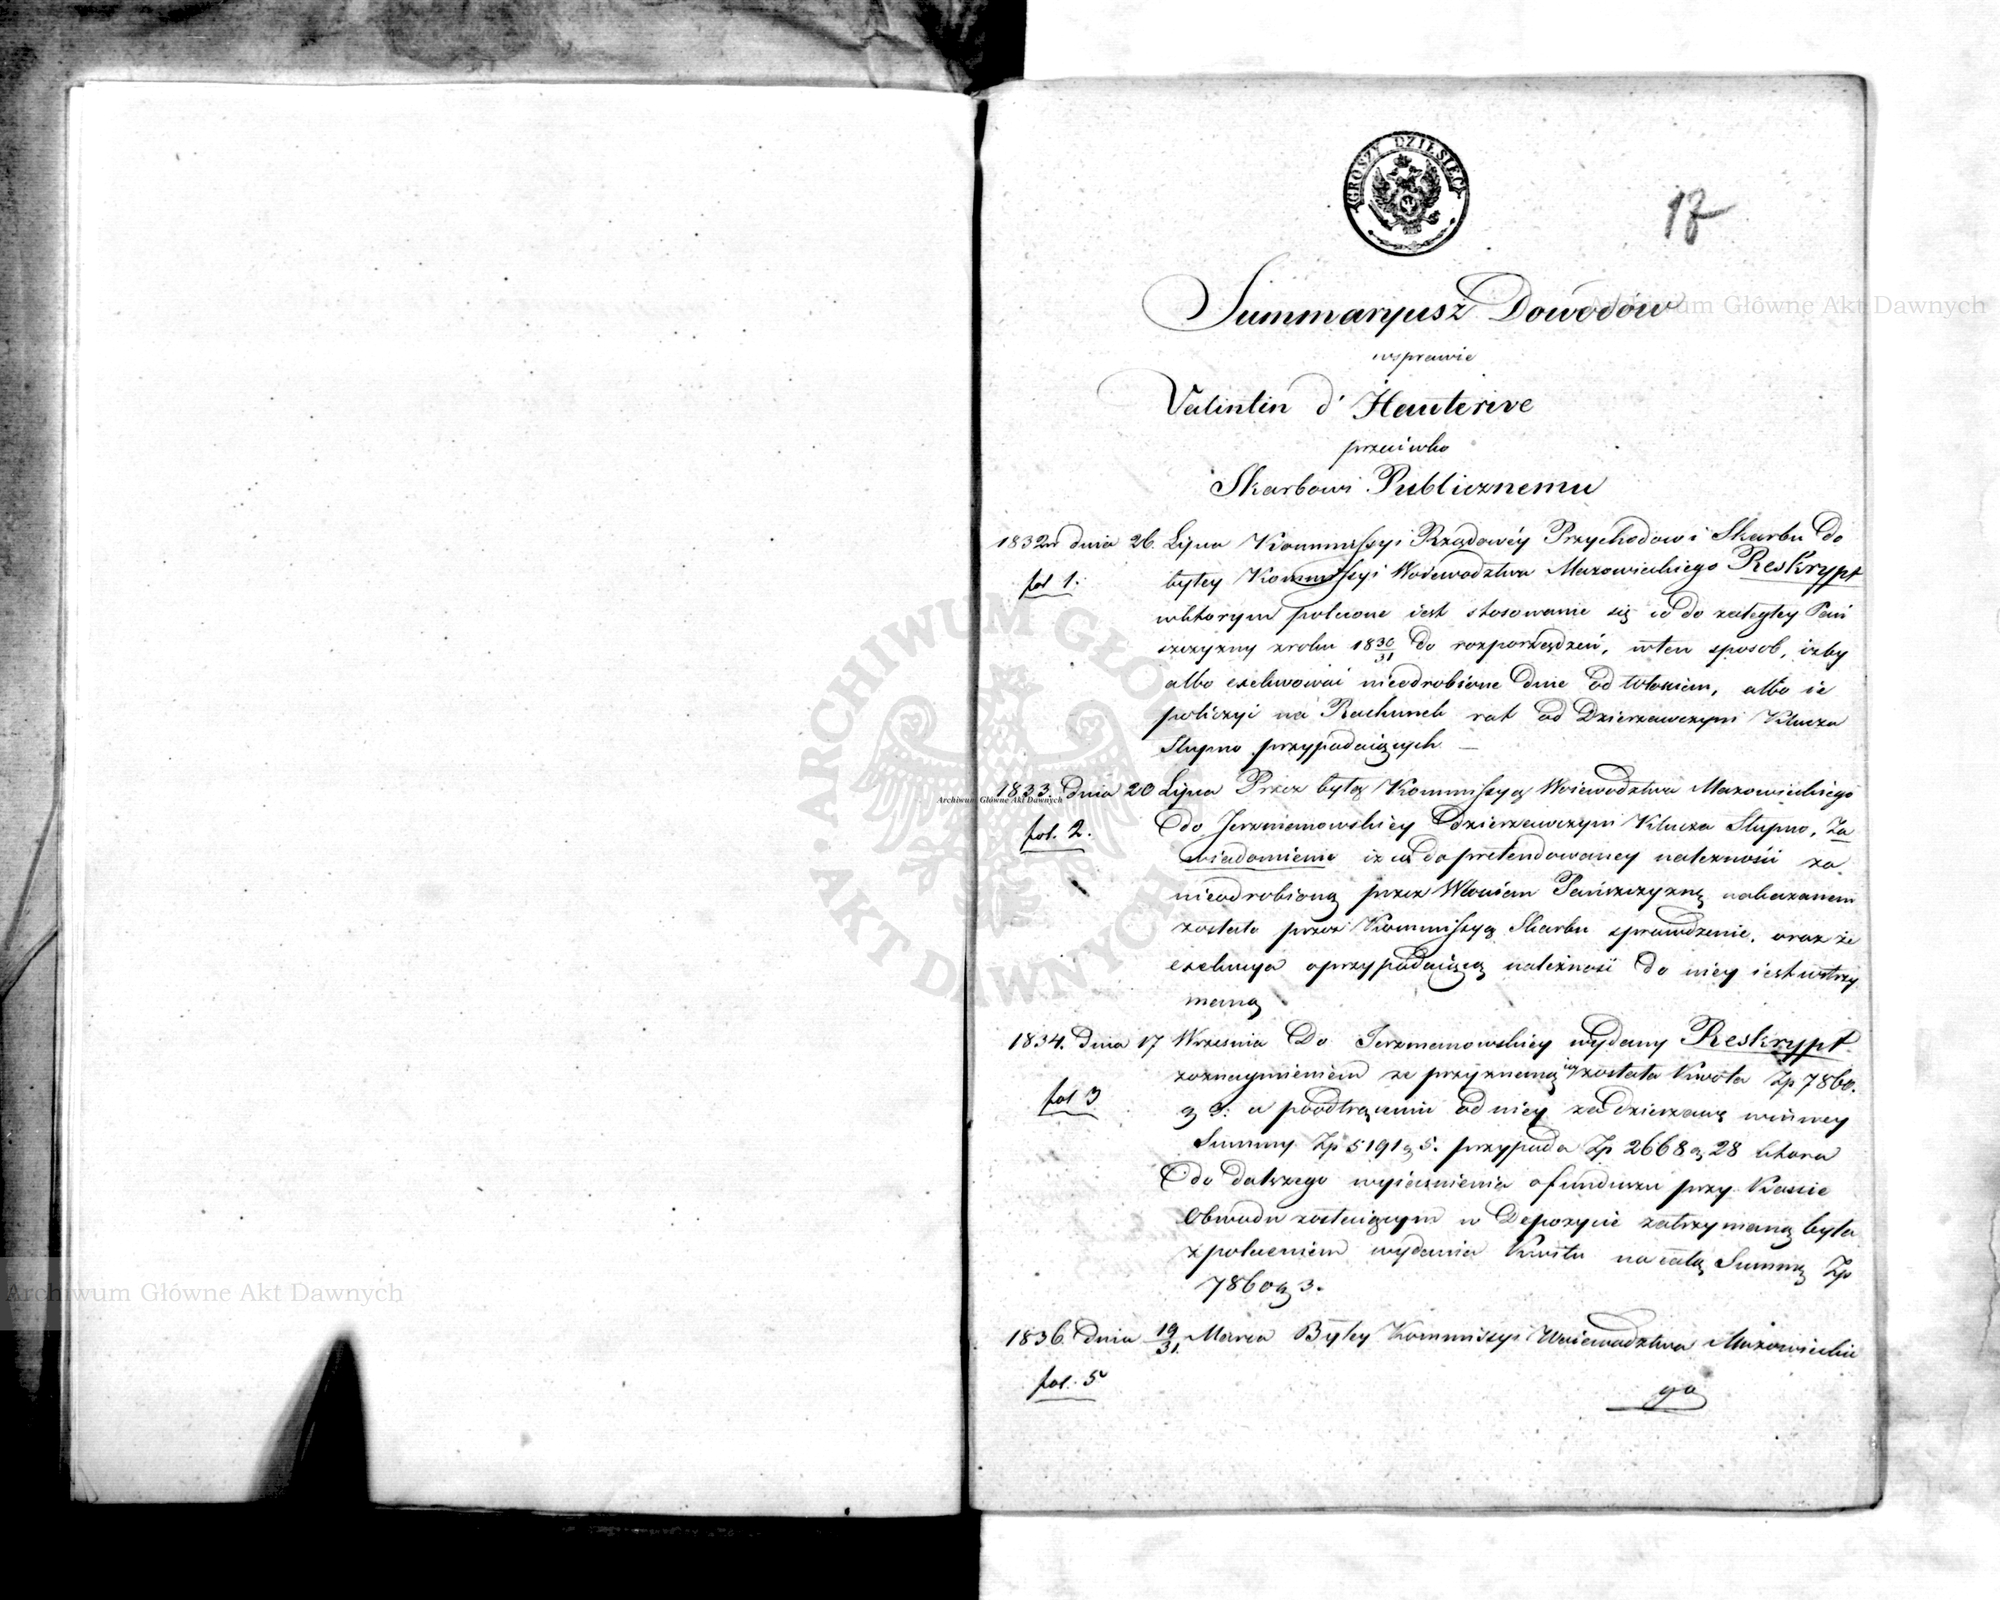 GROSZY DZIESIĘĆ
17
Summaryusz Dowodów
wsprawie
Valintin d' Hauterive
przeciwko
Skarbowi Publicznemu
1832 dnia 26. Lipca Kommissyi Rządowéy Przychodów i Skarbu do
fol 1. byłey Kommissyi Woiewodztwa Mazowieckiego Reskrypt
wktorym polecone iest stosowanie się co do zaległey Pań
szczyzny zroku 1830/31 do rozporządzeń, wten sposób, iżby
albo exekwować nieodrobione dnie od Włościan, albo ie
policzyć na Rachunek rat od Dzierzawczyni Klucza
Słupno przypadaiących. —
1833. dnia 20 Lipca Przez byłą Kommissyą Woiewodztwa Mazowieckiego
fol. 2. do Jerzmanowskiey dzierzawczyni Klucza Słupno, Za
wiadomienie iż co do pretendowaney należności za
nieodrobioną przez Włościan Pańszczyznę nakazanem
zostało przez Kommissyą Skarbu sprawdzenie, oraz że
exekucya oprzypadaiącą należność do niey iest wstrzy
maną
1834. dnia 17 Września Do Jerzmanowskiey wydany Reskrypt
fol 3 zoznaymieniem że przyznaną iey została Kwota Zp 7860.
g 3: a poodtrąceniu od niey za dzierzawę winney
Summy Zp 5191 g 5. przypada Zp 2668 g 28 która
do dalszego wyiaśnienia ofunduszu przy Kassie
Obwodu zostaiącym w Depozycie zatrzymaną była
z poleceniem wydania Kwitu na całą Summę Zp
7860 g 3.
1836. dnia 19/31. Marca Byłey Kommissyi Woiewodztwa Mazowieckie
fol. 5 go
Archiwum Główne Akt Dawnych
Archiwum Główne Akt Dawnych
Archiwum Główne Akt Dawnych
ARCHIWUM GŁÓWNE AKT DAWNYCH